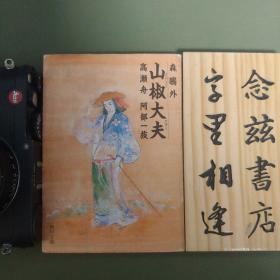 森鷗外
山椒大夫
高瀬舟 阿部一族
念兹書店
字里相逢